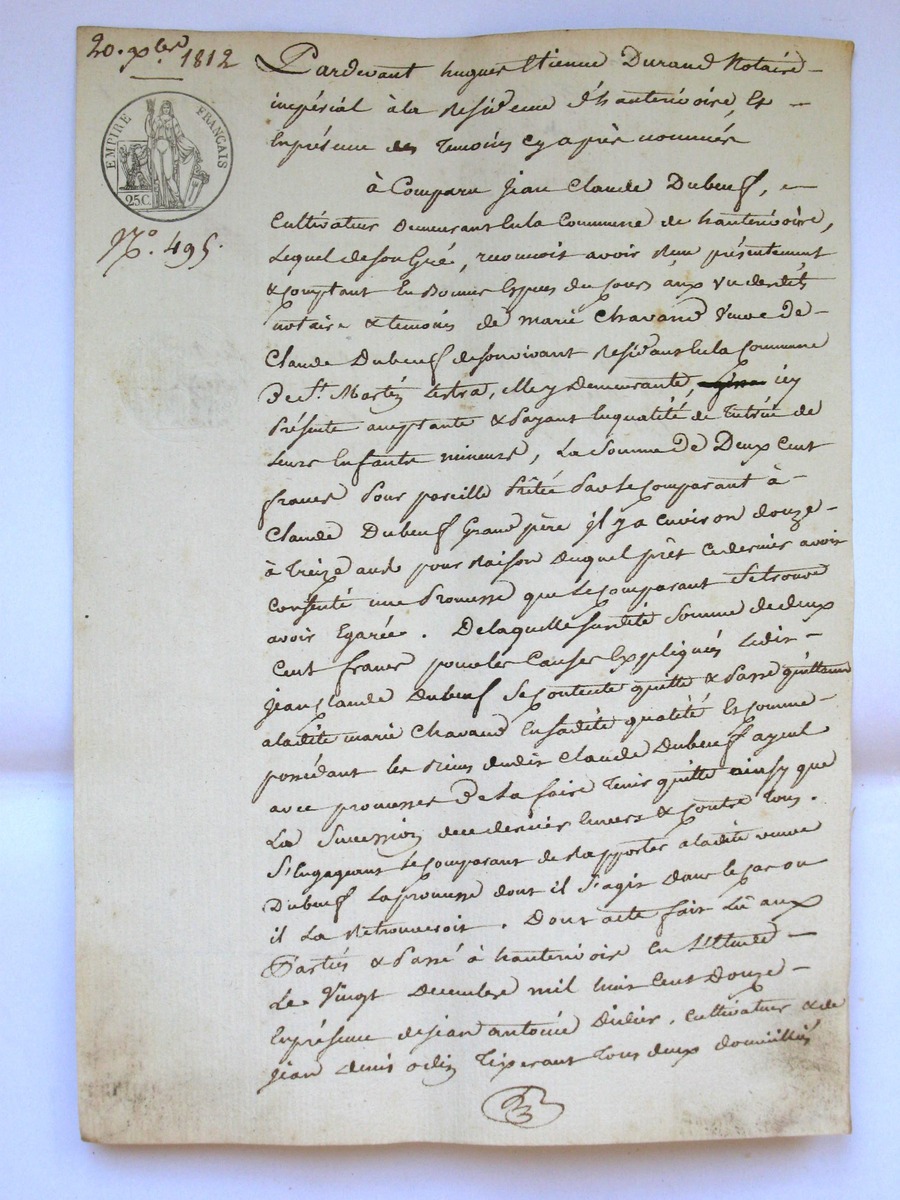 20. Xbre 1812
EMPIRE FRANÇAIS
25 C.
N.o 495.
Pardevant hugues Etienne Durand Notaire
impérial à la Residence d'hauterivoire, Et
En présence des Temoins cy après nommés
à Comparu Jean Claude Dubeuf,
Cultivateur demeurant En la Commune de hauterivoire,
Lequel de Son Gré, reconnoit avoir Reçu présentement
& comptant En Bonnes Especes du Cours aux vu desdits
notaire & temoins de marie Chavand veuve de
Claude Dubeuf de son vivant Residant En la Commune
De St. Martin Lestra, elle y Demeurante, icy
Présente acceptante & Payant En qualité de Tutrice de
Leurs Enfants mineurs, La Somme De Deux Cent
francs Pour pareille Prêtée Par Le Comparant à
Claude Dubeuf Grand père il y a environ douze
à Treize ans pour Raison duquel prêt ce dernier avoit
Consenti une Promesse que Le Comparant Se trouve
avoir Egarée. De laquelle Susdite Somme de deux
Cent francs pour les Causes Expliqués Ledit
Jean Claude Dubeuf Se Contente quitte & Passe quittance
a ladite marie Chavand En Sadite qualité Et comme
possédant les Biens dudit Claude Dubeuf ayeul
avec promesses De La faire Tenir quitte ainsy que
La Succession de ce dernier Envers & Contre Tous.
S'Engageant Le Comparant de Rapporter a ladite veuve
Dubeuf La promesse dont il S'agit Dans le Cas ou
il La Retrouveroit. Dont acte fait Lû aux
Parties & Passé à hauterivoire En L'Etude
Le Vingt Decembre mil huit Cent Douze
En présence de Jean antoine Didier, Cultivateur & de
Jean Denis odin Tixerant Tous deux domiciliés